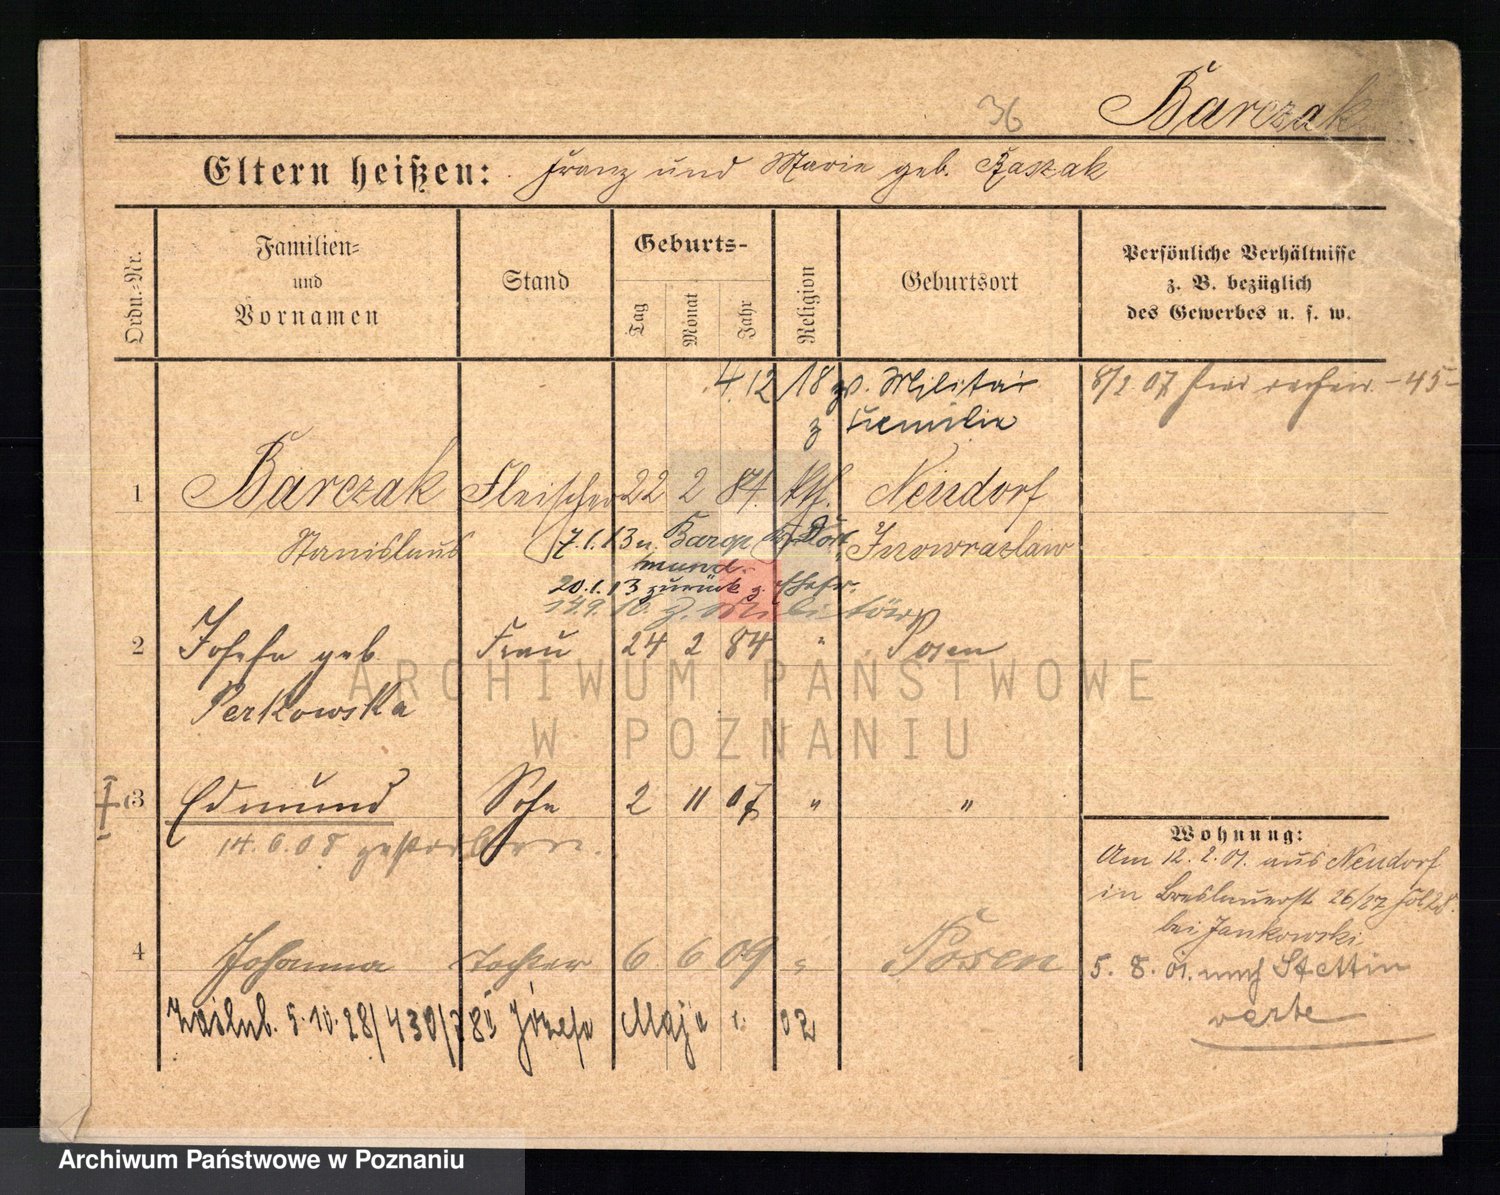 36 Barczak
Eltern heißen: Franz und Marie geb.
Ordn.-Nr.
Familien-
und
Vornamen
Stand
Geburts-
Tag
Monat
Jahr
Religion
Geburtsort
Persönliche Verhältnisse
z. B. bezüglich
des Gewerbes u. s. w.
4.12 18 Militär
z Familie
07 -45-
1 Barczak Fleischer 22 2 84. Kth. Neudorf
Stanislaus Inowraslaw
7.1.13 n. Barop Dort
mund.
20.1.13 zurück z. Ehefr.
z. Militär
2 Josefa geb Frau 24 2 84 " Posen
Perkowska
3 Edmund Sohn 2 11 07 " "
14.6.08 gestorben.
4 Johanna Tochter 6 6 09 " Posen
Zaślub. 5.10.28/430/28 Józefa
Wohnung:
Am 12.2.01. aus Neudorf
in Breslauerst 26/27
bei Jankowski
5.8.01. nach Stettin
verte
ARCHIWUM PAŃSTWOWE
W POZNANIU
Archiwum Państwowe w Poznaniu